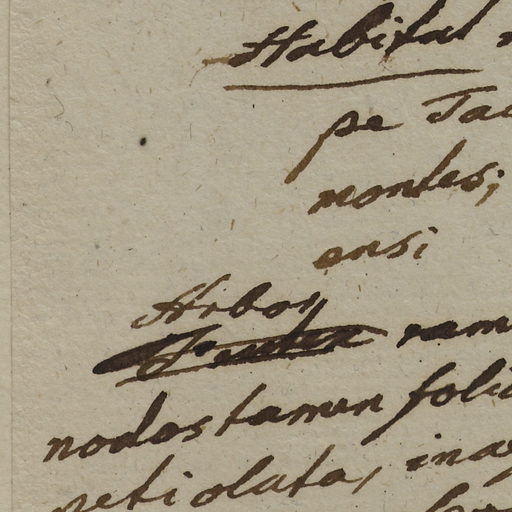 Habitat
pe Tac
montes;
ensi
Arbor
Frutex ram
nodos tamen folia
petiolata, inae